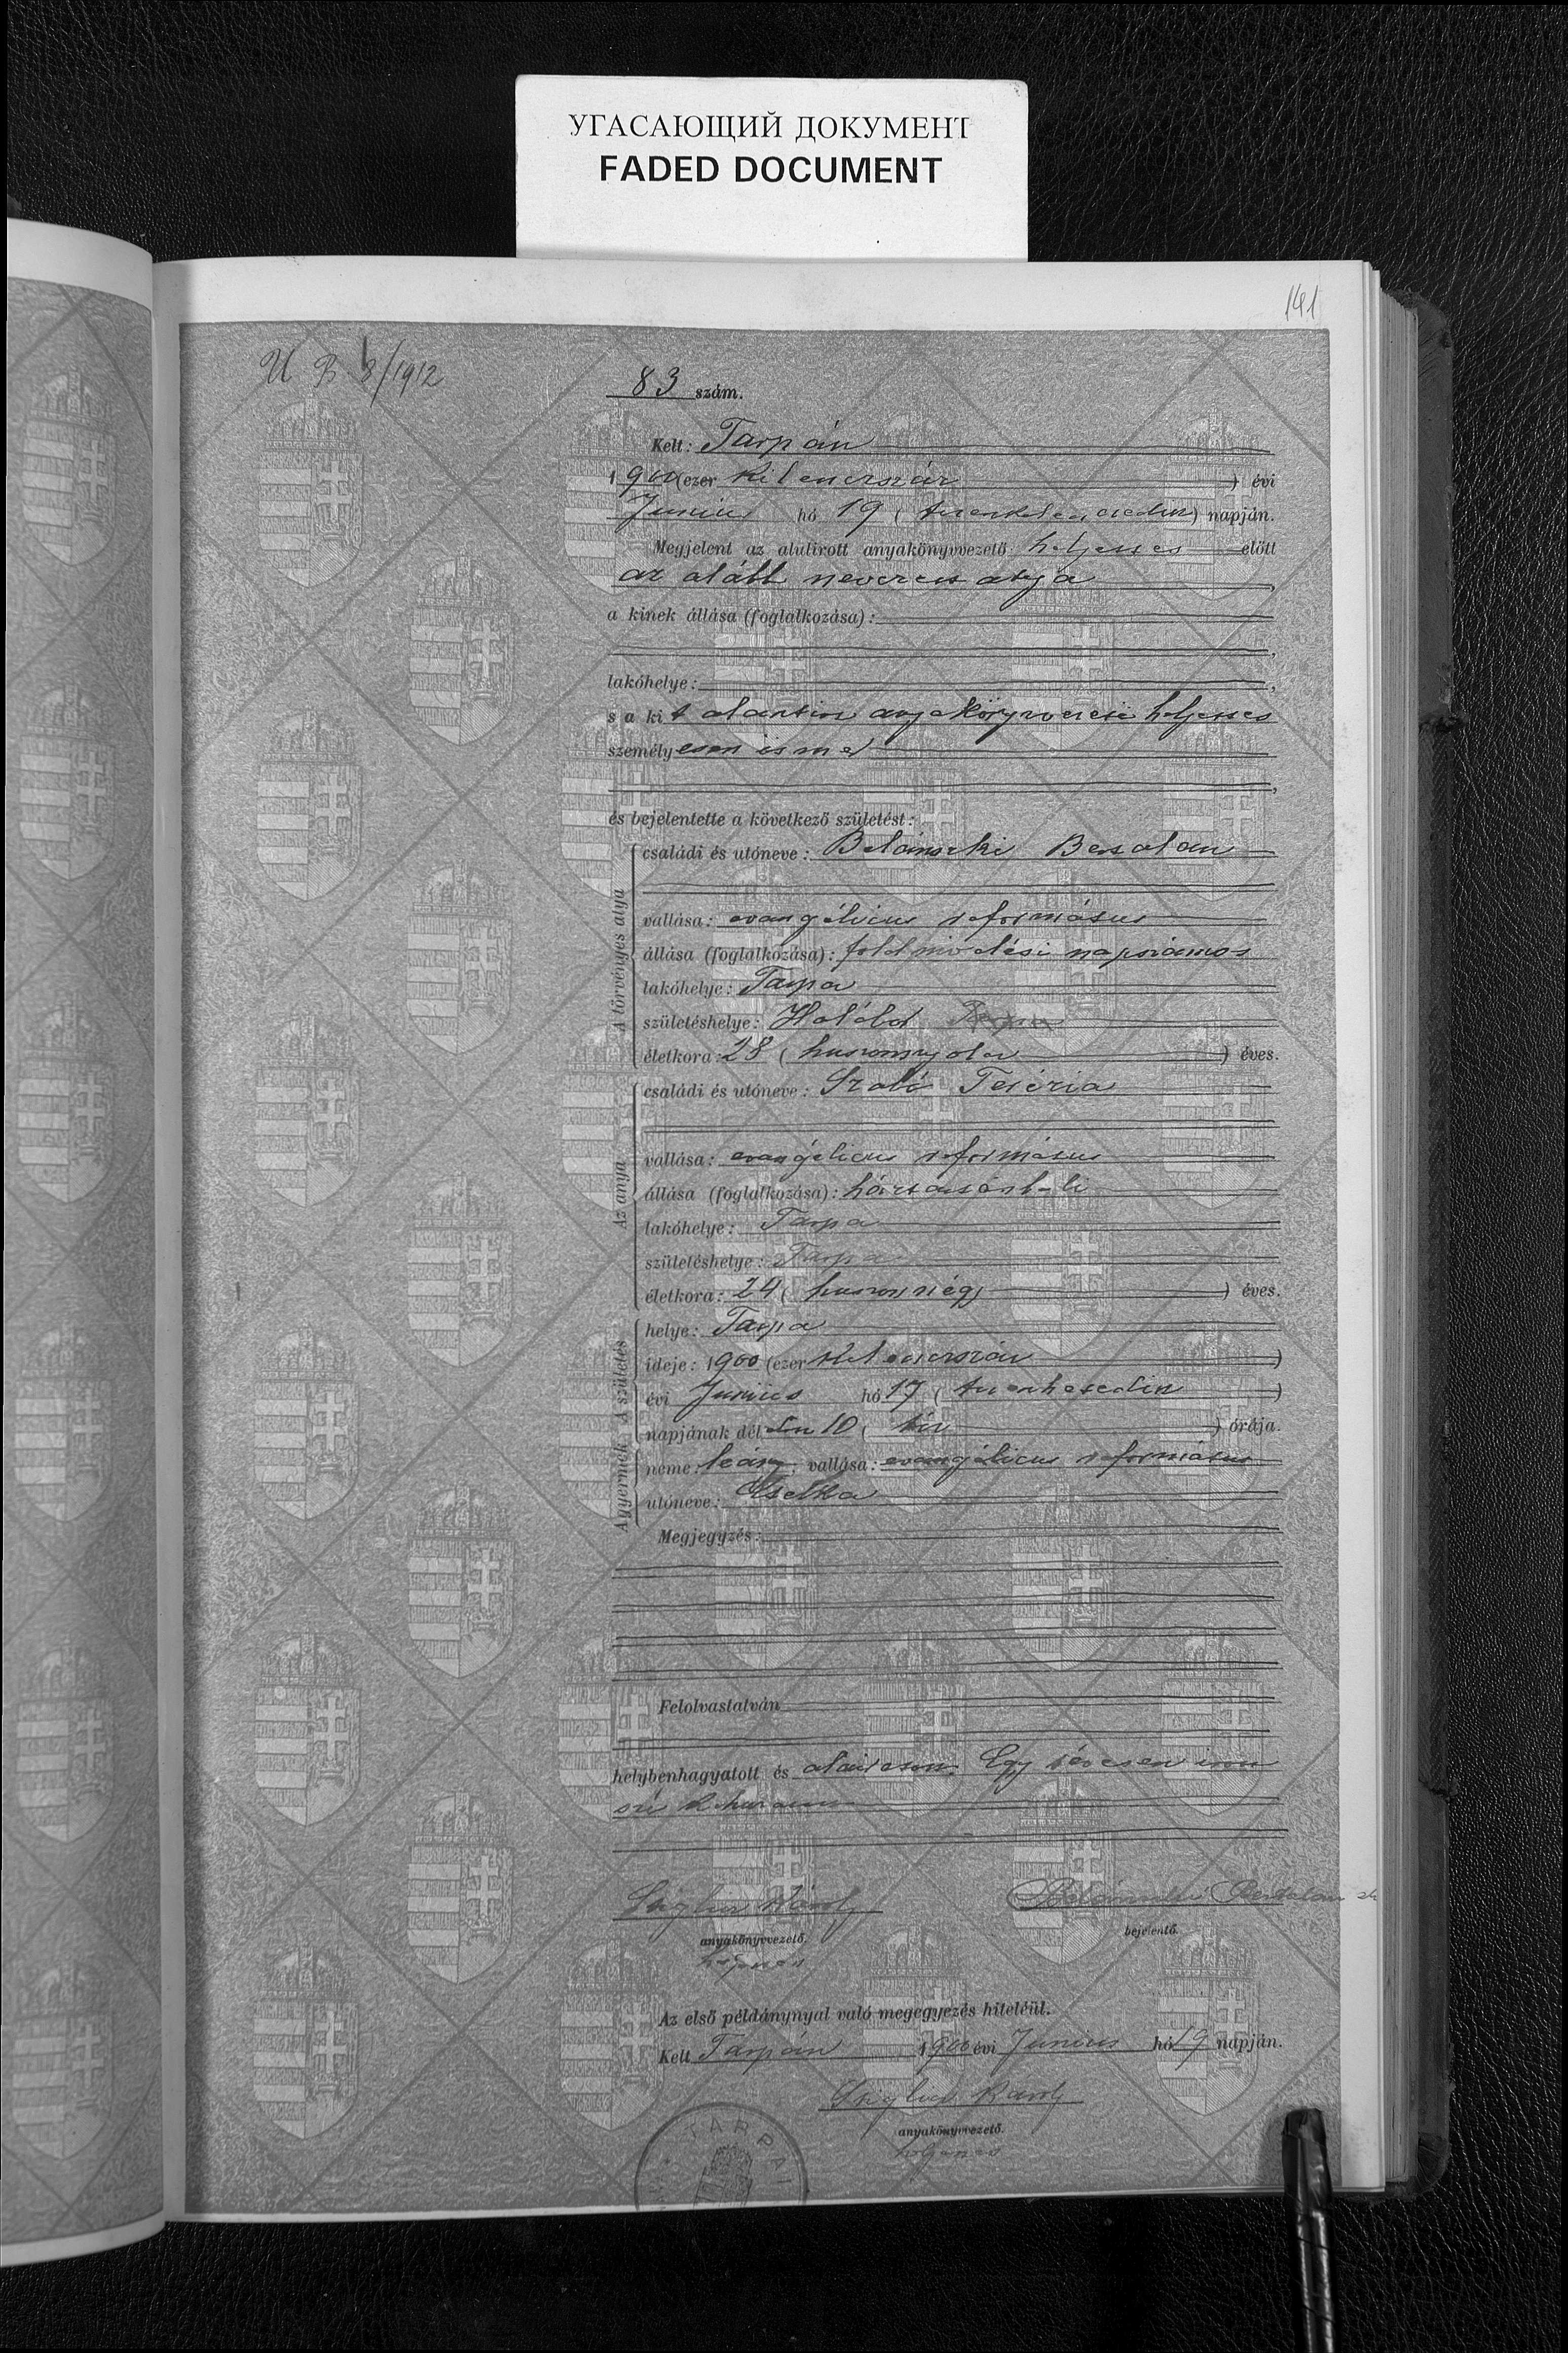 УГАСАЮЩИЙ ДОКУМЕНТ
FADED DOCUMENT
141
U B 8/1912
83 szám.
Kelt: Tarpán
1900 (ezer kilencszáz ) évi
Junius hó 19 ( tizenkilencedik ) napján.
Megjelent az alulirott anyakönyvvezető helyettes előtt
az alább nevezett atyja
a kinek állása (foglalkozása):
lakóhelye:
s a kit alantirt anyakönyvvezető helyettes
személyesen ismer
és bejelentette a következő születést:
A törvényes atya
családi és utóneve: Balánszki Bertalan
vallása: evangélicus református
állása (foglalkozása): földmivelési napszámos
lakóhelye: Tarpa
születéshelye: Halábor Tarpa
életkora: 28 ( huszonnyolcz ) éves.
Az anya
családi és utóneve: Szabó Terézia
vallása: evangélicus református
állása (foglalkozása): háztartásbeli
lakóhelye: Tarpa
születéshelye: Tarpa
életkora: 24 ( huszonnégy ) éves.
A születés
helye: Tarpa
ideje: 1900 (ezer kilencszáz )
évi Junius hó 17 ( tizenhetedik )
napjának dél előtt 10 ( tíz ) órája.
A gyermek
neme: leány; vallása: evangélicus református
utóneve:
Megjegyzés:
Felolvastatván
helybenhagyatott és aláiratott. Egy
Károly
anyakönyvvezető.
helyettes
Balánszki Bertalan sk
bejelentő.
Az első példánynyal való megegyezés hiteléül.
Kelt Tarpán 1900 évi Junius hó 19 napján.
Károly
anyakönyvvezető.
helyettes
TARPAI